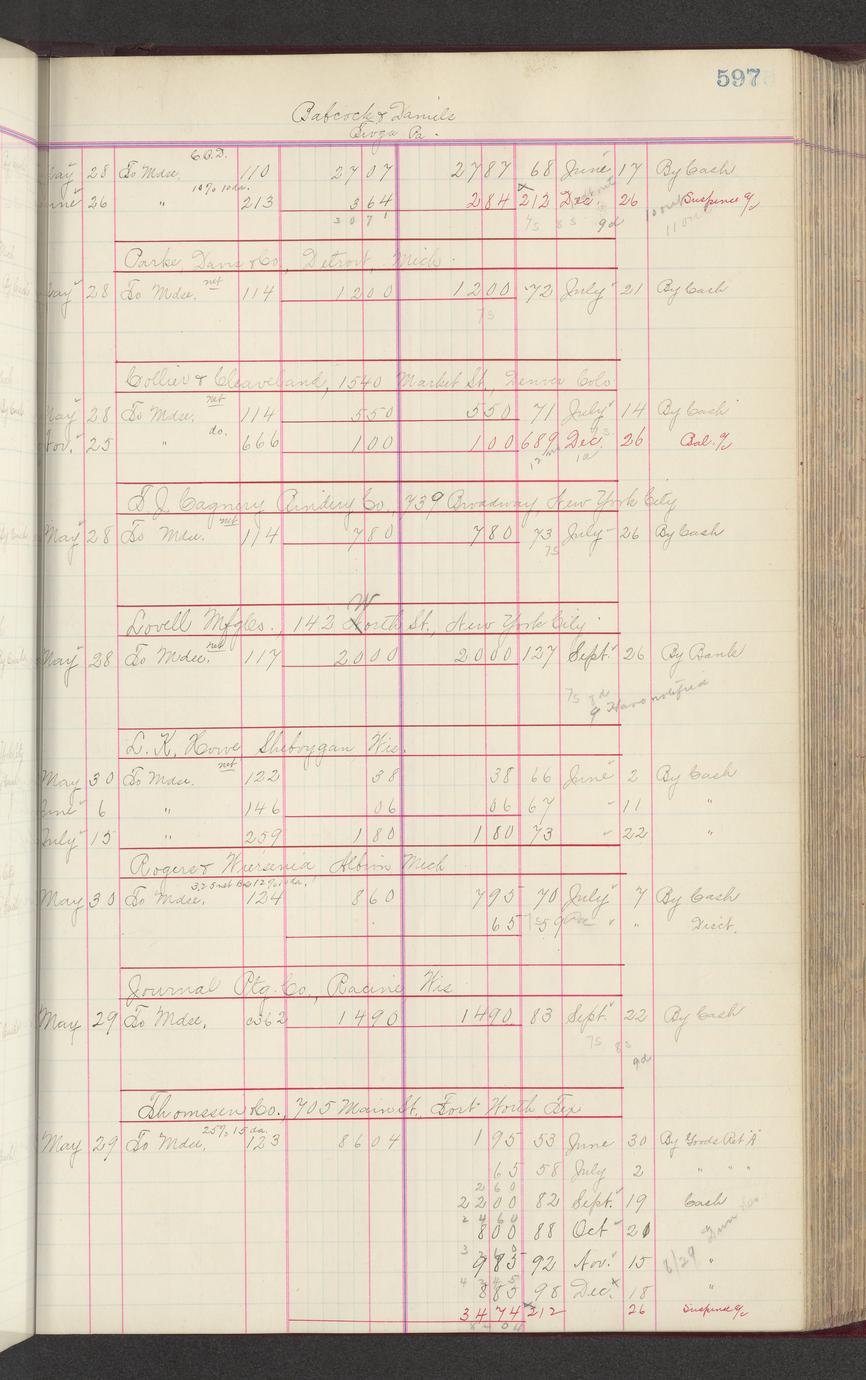 597
Babcock & Daniels
Tioga Pa.
C.O.D.
May 28 To Mdse. 110 27 07 27 87 68 June 17 By Cash
10% 10 da.
June 26 " 213 3 64 2 84 212 Dec. 26 Suspence a/c
30 71 7s 8s 9d
Parke Davis & Co., Detroit, Mich.
net
May 28 To Mdse. 114 12 00 12 00 72 July 21 By Cash
7s
Collier & Cleaveland, 1540 Market St, Denver Colo
net
May 28 To Mdse. 114 5 50 5 50 71 July 14 By Cash
do.
Nov. 25 " 666 1 00 1 00 689 Dec. 26 Bal. a/c
T. J. Cagney Bindery Co., 739 Broadway, New York City
net
May 28 To Mdse. 114 7 80 7 80 73 July 26 By Cash
7s
W
Lovell Mfg Co., 142 North St., New York City.
net
May 28 To Mdse. 117 20 00 20 00 127 Sept. 26 By Bank
7s 8d
9 Have notified
L. K. Howe Sheboygan Wis.
net
May 30 To Mdse. 122 38 38 66 June 2 By Cash
June 6 " 146 06 06 67 " 11 "
July 15 " 259 1 80 1 80 73 " 22 "
Rogers & Wiersema Albion Mich
May 30 To Mdse. 124 8 60 7 95 70 July 7 By Cash
65 59 " " Disct.
Journal Ptg. Co., Racine Wis
May 29 To Mdse. 362 14 90 14 90 83 Sept. 22 By Cash
7s 8s
9d
Thomssen & Co., 705 Main St., Fort Worth Tex
25% 15 da.
May 29 To Mdse. 123 86 04 1 95 53 June 30 By Goods Ret'd
65 58 July 2 " " "
2 60
22 00 82 Sept. 19 Cash
24 60
8 00 88 Oct 21 "
9 85 92 Nov. 15 "
8/29
8 85 98 Dec. 18 "
34 74 212 26 Suspence a/c